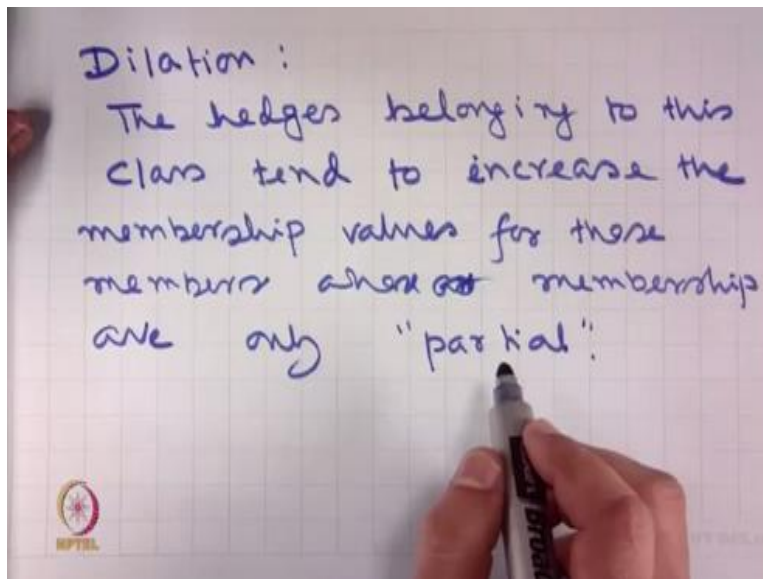 Dilation :
The hedges belonging to this
class tend to increase the
membership values for those
members whose membership
are only "partial".
NPTEL